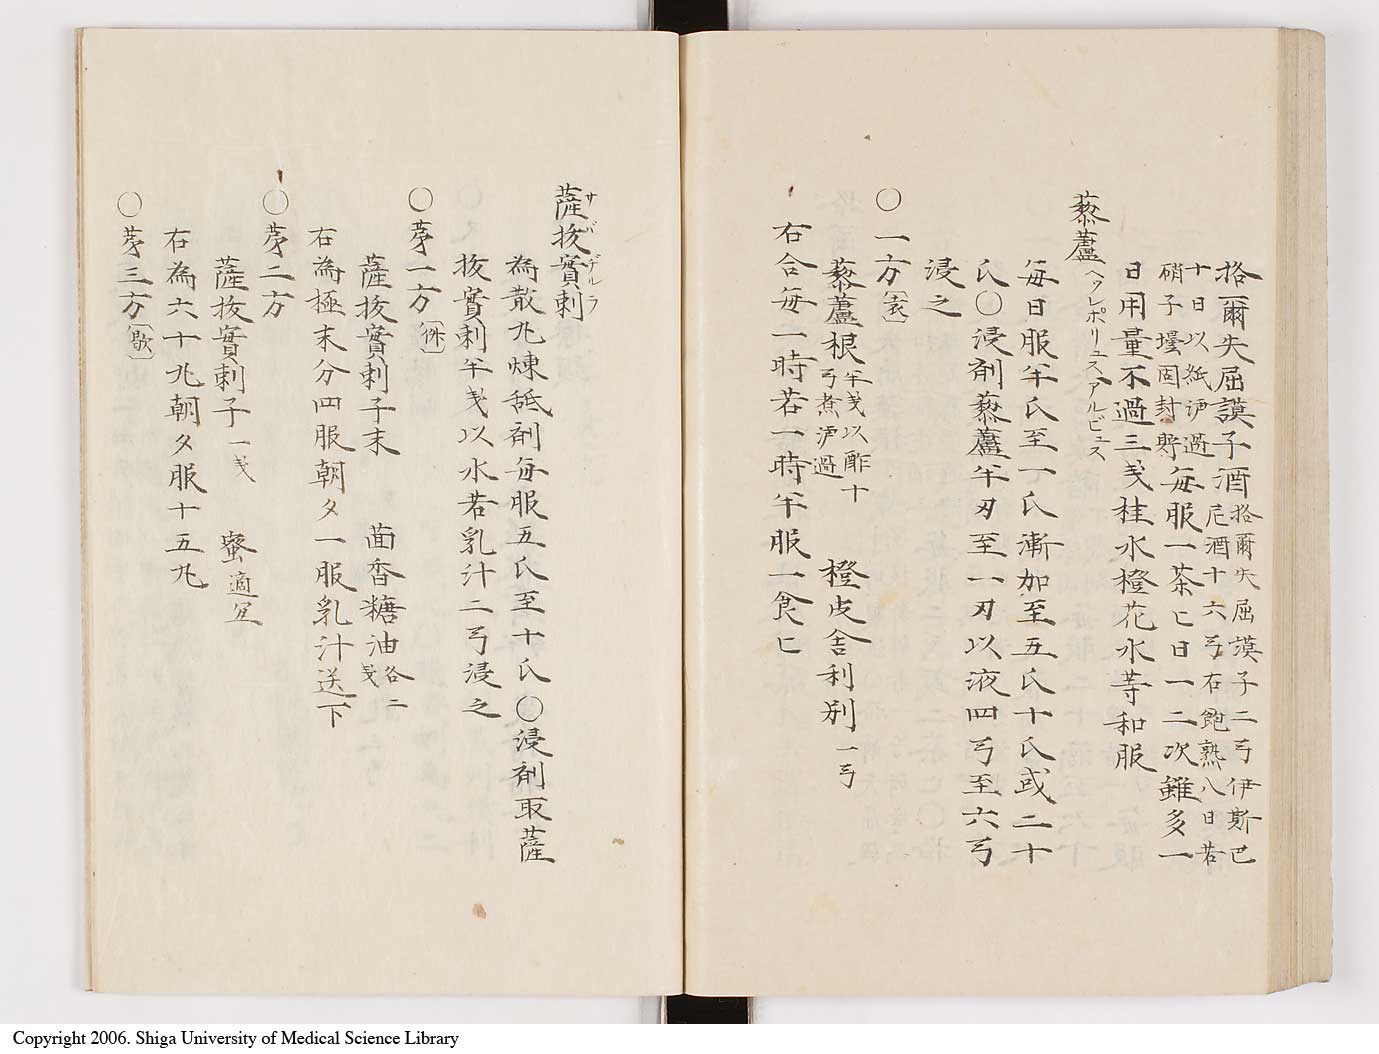 格爾失屈謨子酒格爾失屈謨子二弓伊斯巴
尼酒十六弓右飽熟八日若
十日以紙沪過
硝子壜固封貯毎服一茶匕日一二次雖多一
日用量不過三戔桂水橙花水䓁和服
藜蘆ヘルレポリュスアルビュス
毎日服半氏至一氏漸加至五氏十氏或二十
氏〇浸剤藜蘆半刄至一刄以液四弓至六弓
浸之
〇一方
藜蘆根半戔以酢十弓煮沪過 橙皮舎利別一弓
右合毎一時若一時半服一食匕
薩抜實剌サバヂルラ
為散丸煉舐剤毎服五氏至十氏〇浸剤取薩
抜實剌半戔以水若乳汁二弓浸之
〇苐一方
薩抜實剌子末 茴香糖油各二戔
右為極末分四服朝夕一服乳汁送下
〇苐二方
薩抜實剌子一戔 蜜適宜
右為六十丸朝夕服十五丸
〇苐三方〔歇〕
Copyright 2006. Shiga University of Medical Science Library